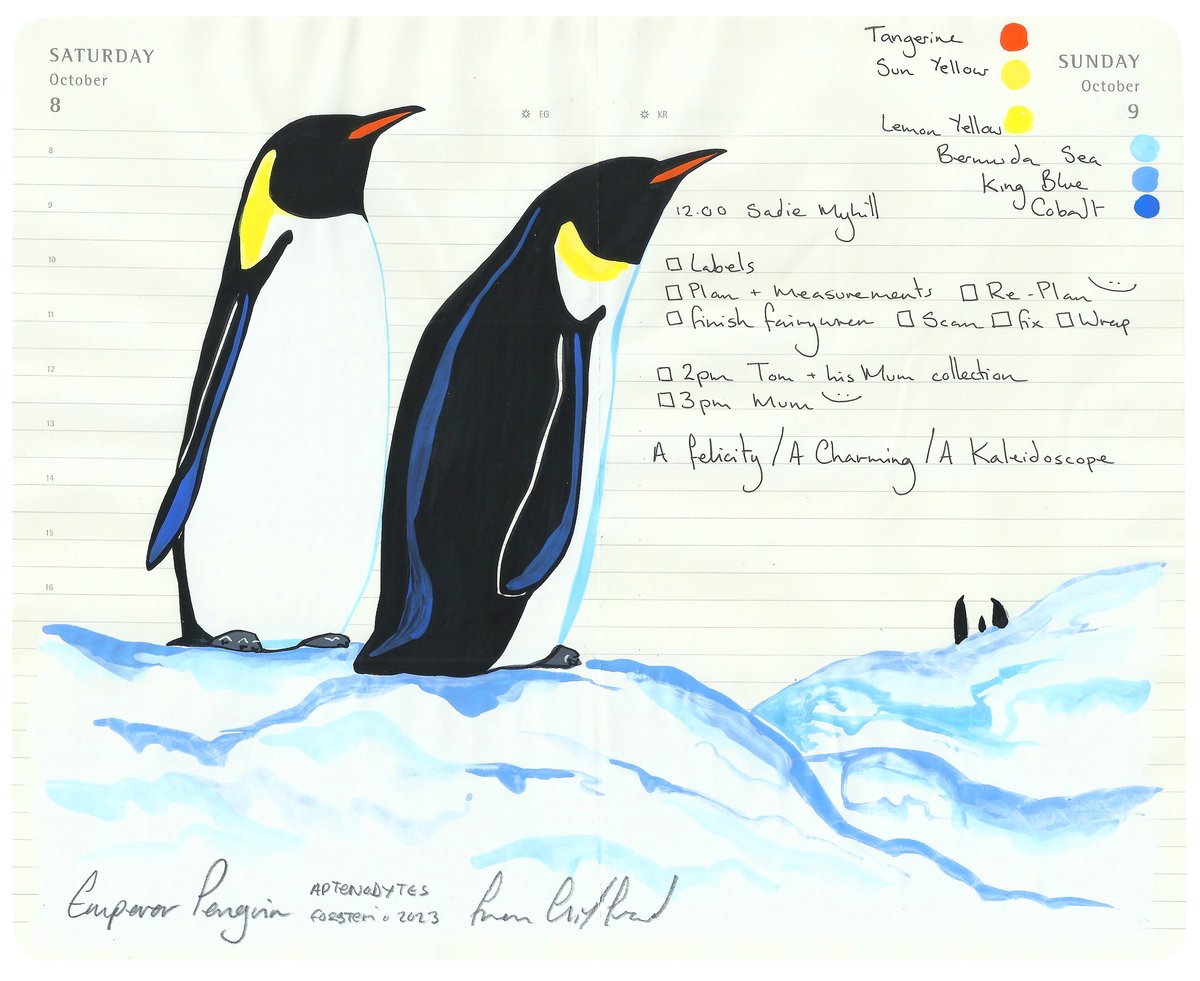 SATURDAY
October
8
EG
KR
SUNDAY
October
9
Tangerine
Sun Yellow
Lemon Yellow
Bermuda Sea
King Blue
Cobalt
8
9
10
11
12
13
14
15
16
12.00 Sadie Myhill
Labels
Plan + Measurements Re-Plan
Finish fairywren Scan Fix Wrap
2pm Tom + his Mum collection
3pm Mum
A Felicity / A Charming / A Kaleidoscope
Emperor Penguin
APTENODYTES
2023